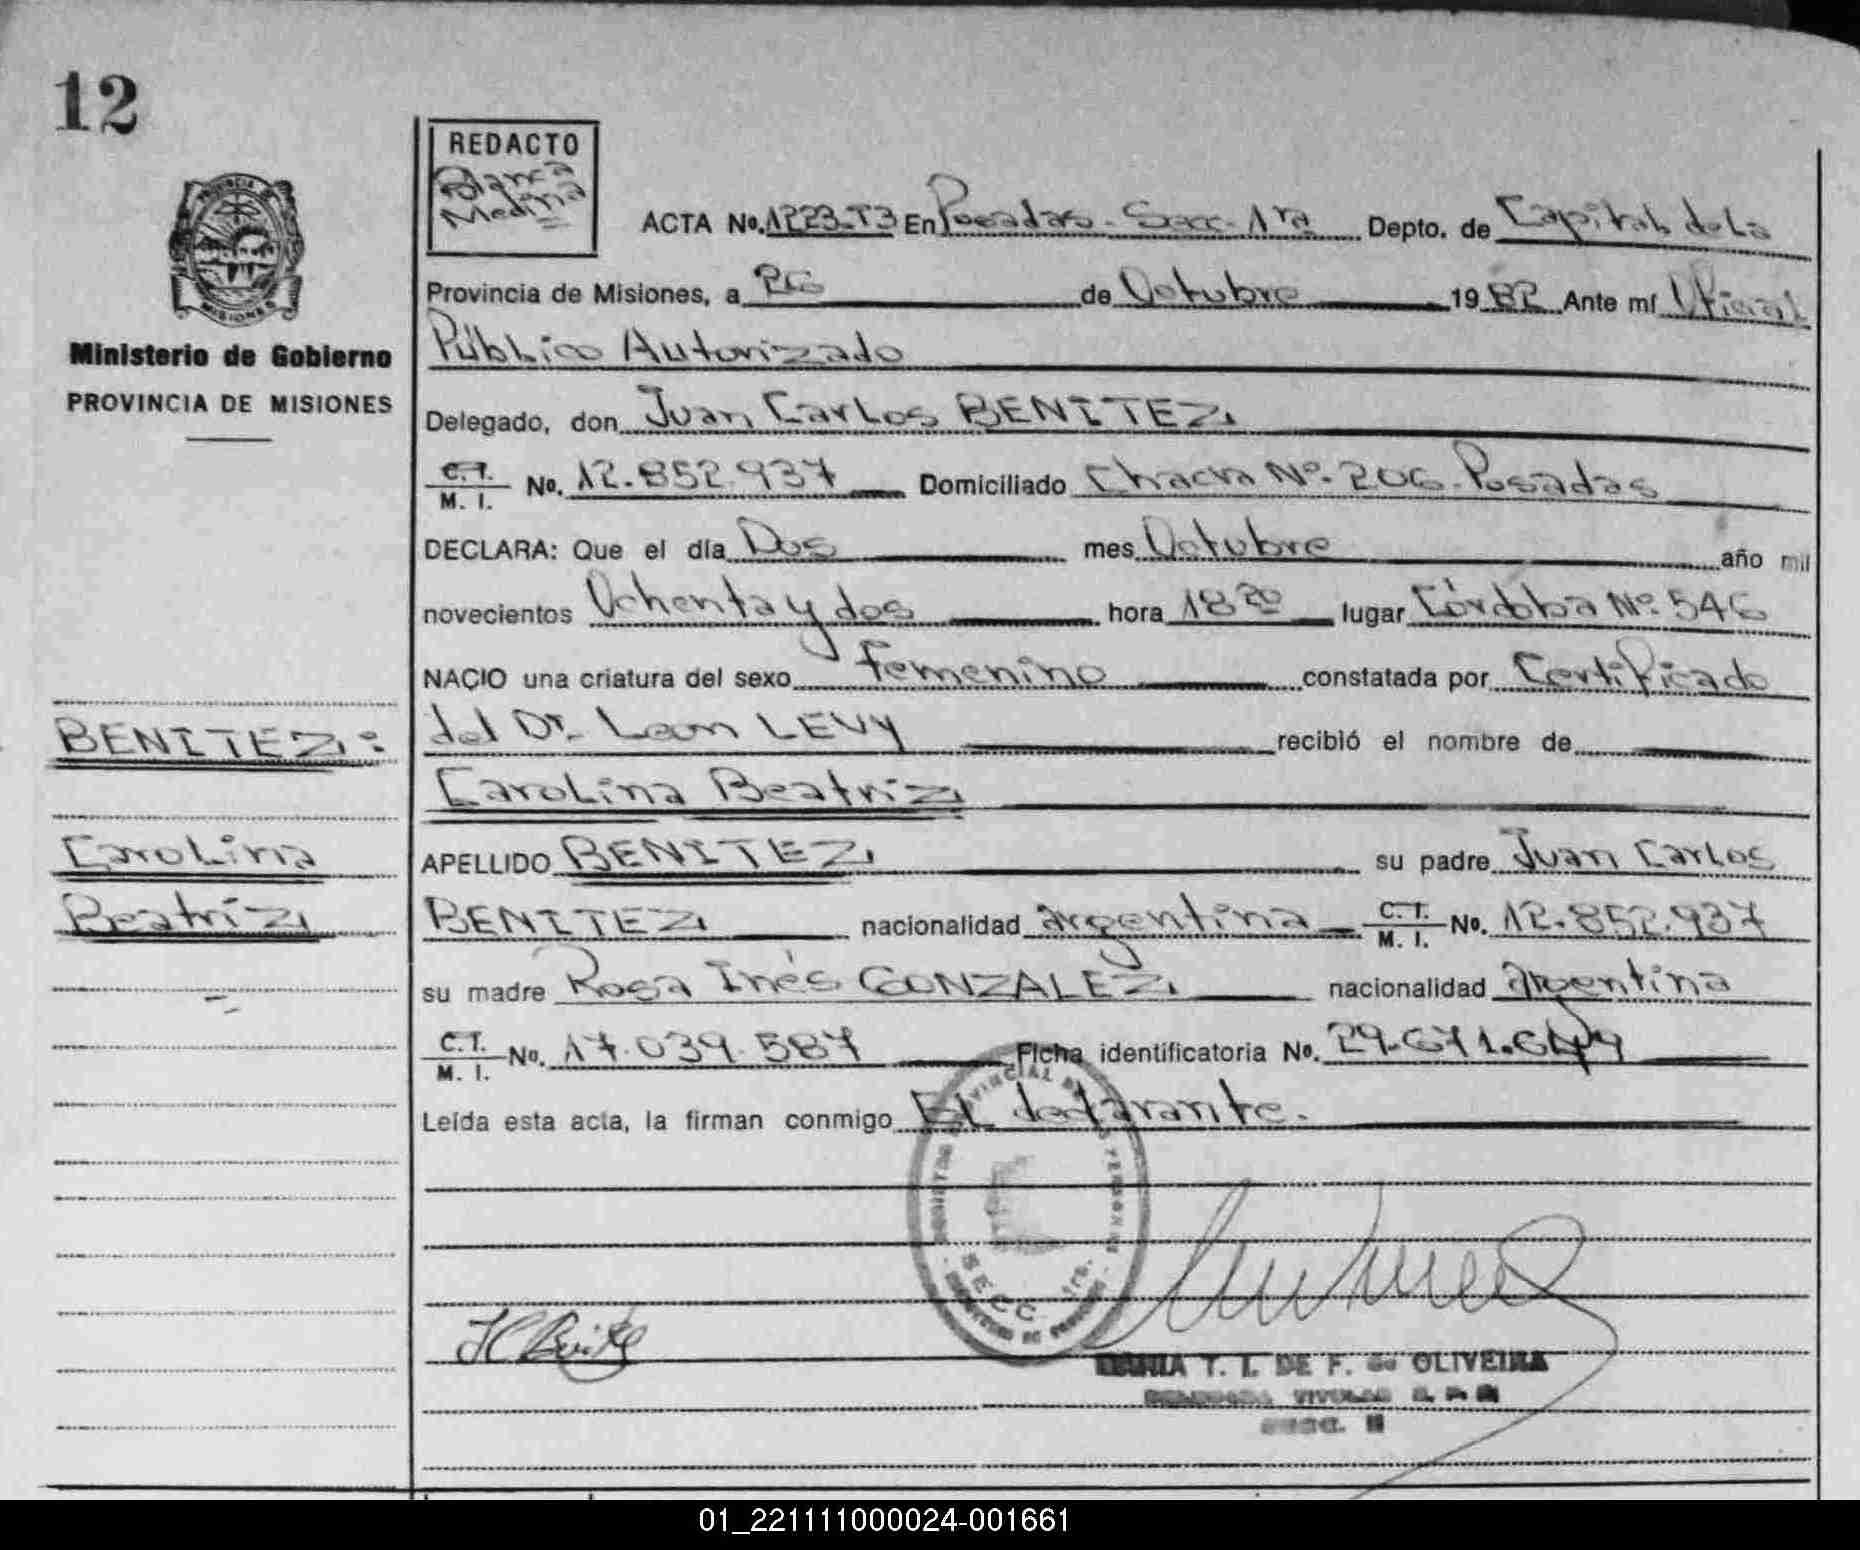 12
REDACTO
Blanca
Medina
PROVINCIA DE
MISIONES
Ministerio de Gobierno
PROVINCIA DE MISIONES
ACTA No. 1223-T3 En Posadas - Secc - 1ra Depto. de Capital de la
Provincia de Misiones, a 26 de Octubre 1982 Ante mí Oficial
Público Autorizado
Delegado, don Juan Carlos BENITEZ
C.T. M.I. No. 12.852.937 Domiciliado Chacra Nº. 206. Posadas
DECLARA: Que el día Dos mes Octubre año mil
novecientos Ochenta y dos hora 18 20 lugar Córdoba Nº. 546
NACIO una criatura del sexo femenino constatada por Certificado
del Dr. Leon LEVY recibió el nombre de
Carolina Beatriz
APELLIDO BENITEZ su padre Juan Carlos
BENITEZ nacionalidad argentina C.T. M.I. No. 12.852.937
su madre Rosa Inés GONZALEZ nacionalidad argentina
C.T. M.I. No. 17.039.587 Ficha identificatoria No. 29.671.649
Leída esta acta, la firman conmigo El declarante.
BENITEZ:
Carolina
Beatriz
SECC. 1ra.
T. I. DE F. de OLIVEIRA
01_221111000024-001661